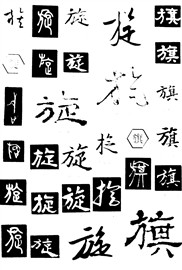 旗旗旗旗旗旗旗
旋旋旗旗
旋旋旋
旋旋旋旋
旋旋旋旋旋旋
旋旋旋